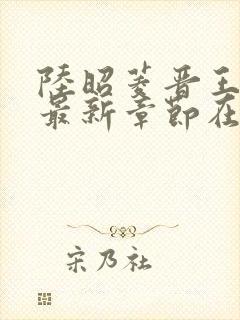 陸昭菱晋王
最新章節在
宋乃社